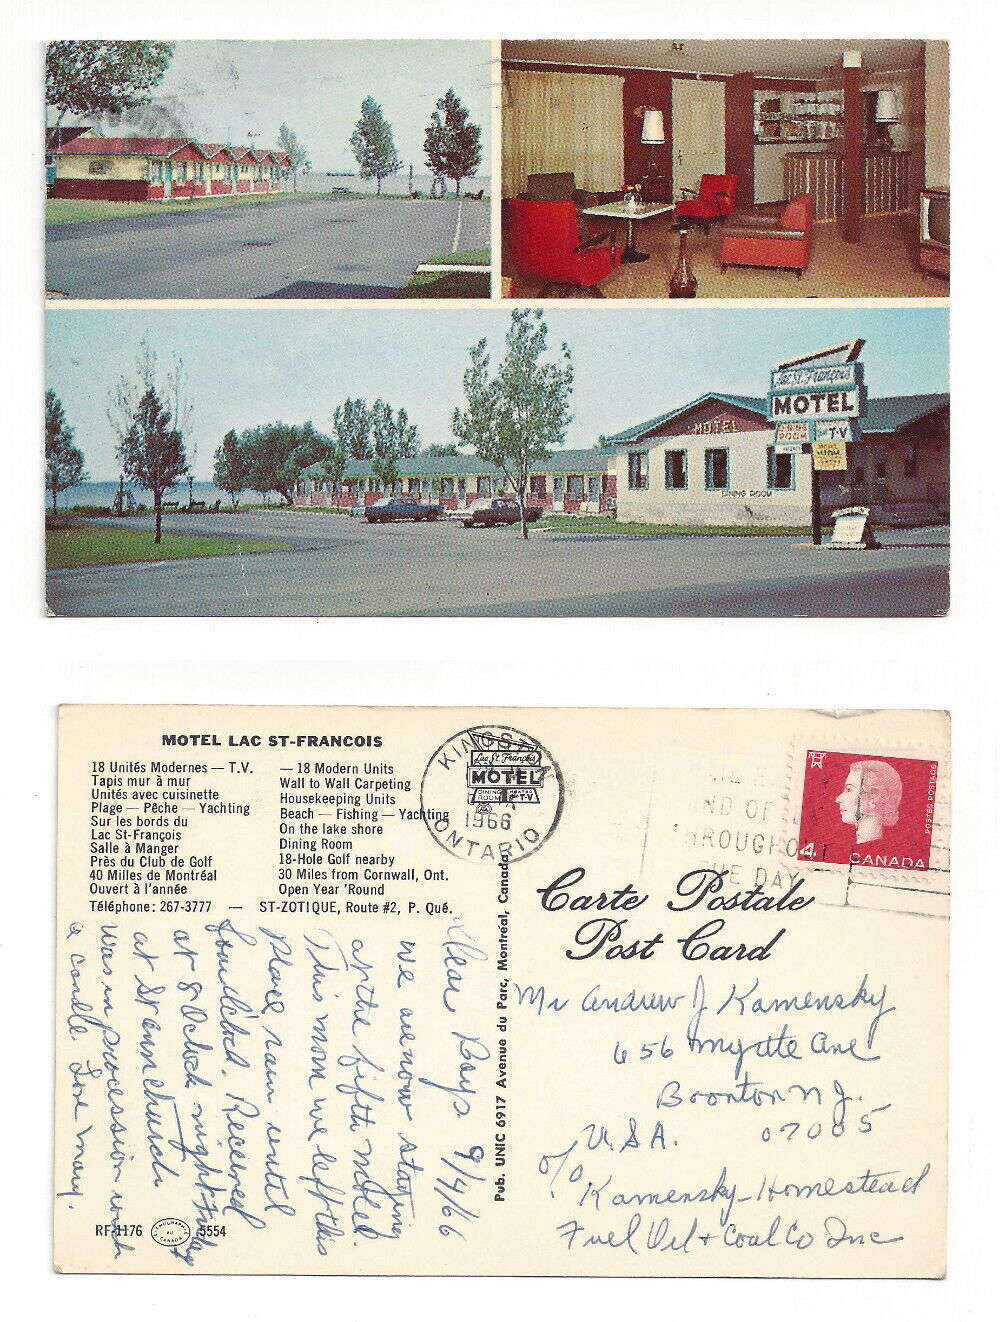 Lac St-François
MOTEL
DINING ROOM
T-V
MOTEL
DINING ROOM
MOTEL LAC ST-FRANCOIS
18 Unités Modernes — T.V.
Tapis mur à mur
Unités avec cuisinette
Plage — Pêche — Yachting
Sur les bords du
Lac St-François
Salle à Manger
Près du Club de Golf
40 Milles de Montréal
Ouvert à l'année
— 18 Modern Units
Wall to Wall Carpeting
Housekeeping Units
Beach — Fishing — Yachting
On the lake shore
Dining Room
18-Hole Golf nearby
30 Miles from Cornwall, Ont.
Open Year 'Round
Téléphone: 267-3777 — ST-ZOTIQUE, Route #2, P. Qué.
KINGSTON
1966
ONTARIO
Lac St-François
MOTEL
DINING ROOM
HEATED
T-V
END OF
THROUGHOUT
THE DAY
4
CANADA
POSTES POSTAGE
Carte Postale
Post Card
Pub. UNIC 6917 Avenue du Parc, Montréal, Canada
9/4/66
Dear Boys
we are now staying
at the fifth motel.
This morn we left this
place rain until
Received
at 8 Oclock night Friday
at St Ann church
was in procession with
a candle. Love mary.
Mr Andrew J Kamensky
656 Myrtle Ave
Boonton N J.
U.S.A. 07005
c/o Kamensky-Homestead
Fuel Oil + Coal Co Inc
RF-1176
LITHOGRAPHIE AU CANADA
5554